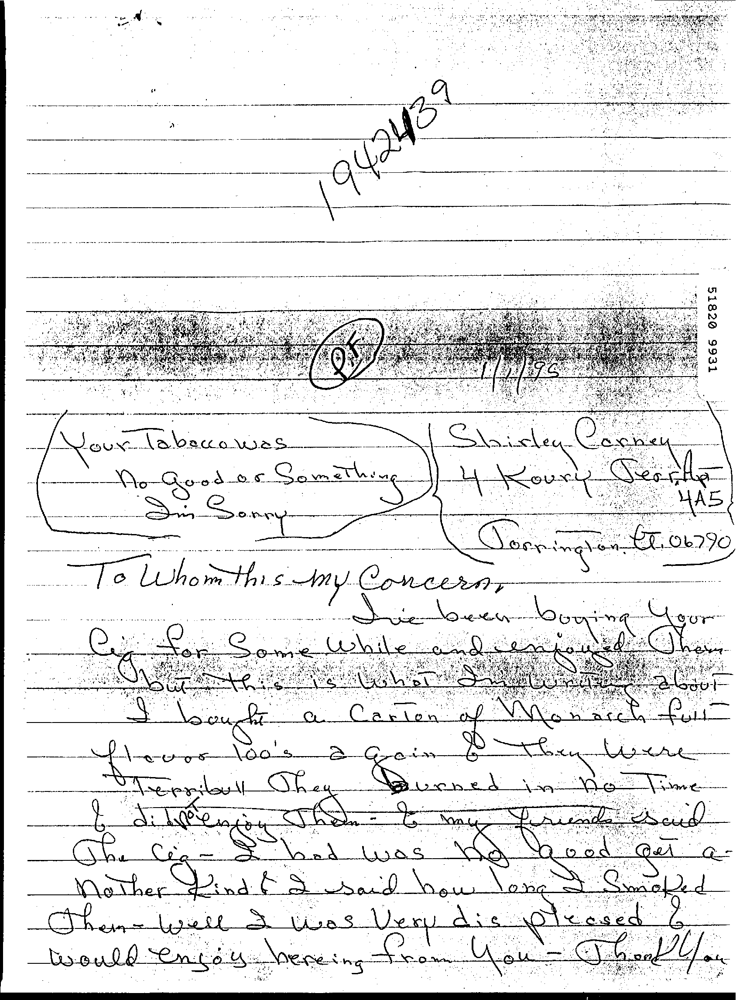 1942439
51820 9931
P.F
1/1/95
Your Tabacco was
no good or Something
I'm Sorry
Shirley Carney
4 Koury Terr. Apt
4A5
Torrington, Ct. 06790
To Whom this my Concern,
I've been buying your
Cig for Some While and enjoyed Them
but this is what I'm writing about
I bought a Carton of Monarch full
flavor 100's again & They Were
Terribull They Burned in no Time
& did not enjoy Them - & my friends said
The Cig - I had was no good get a-
nother Kind & I said how long I Smoked
Them - well I was Very dis pleased &
would enjoy hereing from You - Thank You